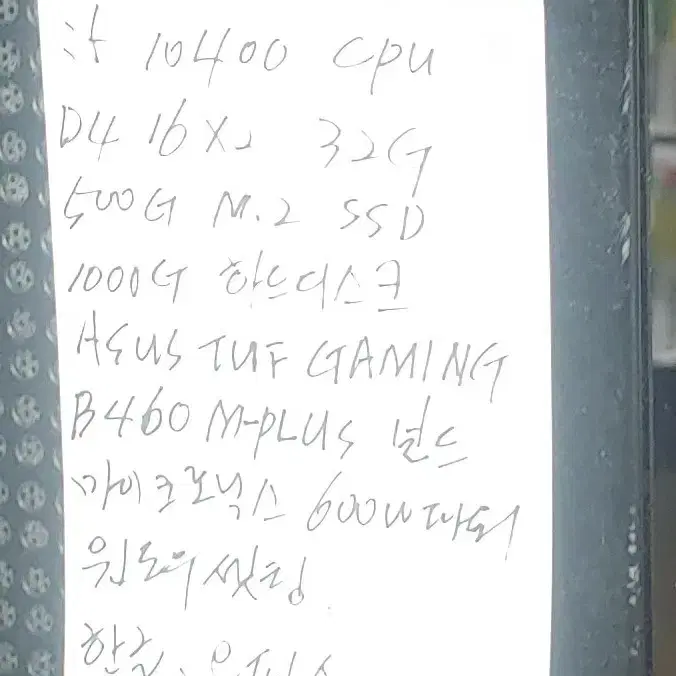 i5 10400 cpu
D4 16X2 32G
500G M.2 SSD
1000G 하드디스크
ASUS TUF GAMING
B460 M-PLUS 보드
마이크로닉스 600W 파워
윈도우 셋팅
한글, 오피스